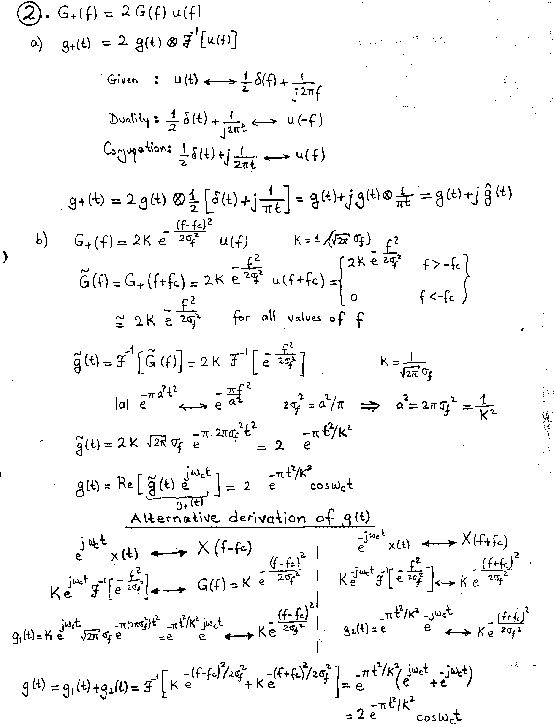 2.. G₊(f) = 2 G(f) u(f)
a) g₊(t) = 2 g(t) ⊗ F⁻¹[u(f)]
Given : u(t) ⟷ 1/2 δ(f) + 1/(j2πf)
Duality: 1/2 δ(t) + 1/(j2πt) ⟷ u(-f)
Conjugation: 1/2 δ(t) + j 1/(2πt) ⟷ u(f)
g₊(t) = 2 g(t) ⊗ 1/2 [δ(t) + j 1/(πt)] = g(t) + j g(t) ⊗ 1/(πt) = g(t) + j ĝ(t)
b) G₊(f) = 2K e^(-(f-fc)²/2σf²) u(f)    K = 1/(√2π σf)
G̃(f) = G₊(f+fc) = 2K e^(-f²/2σf²) u(f+fc) = { 2K e^(-f²/2σf²)  f>-fc
0  f<-fc }
≅ 2K e^(-f²/2σf²) for all values of f
g̃(t) = F⁻¹[G̃(f)] = 2K F⁻¹[e^(-f²/2σf²)]    K = 1/(√2π σf)
|a| e^(-πa²t²) ⟷ e^(-πf²/a²)    2σf² = a²/π ⟹ a² = 2πσf² = 1/K²
g̃(t) = 2K √2π σf e^(-π·2πσf²t²) = 2 e^(-πt²/K²)
g(t) = Re[g̃(t) e^(jωct)] = 2 e^(-πt²/K²) cosωct
g₊(t)
Alternative derivation of g(t)
e^(jωct) x(t) ⟷ X(f-fc) | e^(-jωct) x(t) ⟷ X(f+fc)
K e^(jωct) F⁻¹[e^(-f²/2σf²)] ⟷ G(f) = K e^(-(f-fc)²/2σf²) | K e^(-jωct) F⁻¹[e^(-f²/2σf²)] ⟷ K e^(-(f+fc)²/2σf²)
g₁(t) = K e^(jωct) √2π σf e^(-π(2πσf²)t²) = e^(-πt²/K²) e^(jωct) ⟷ K e^(-(f-fc)²/2σf²) | g₂(t) = e^(-πt²/K²) e^(-jωct) ⟷ K e^(-(f+fc)²/2σf²)
g(t) = g₁(t) + g₂(t) = F⁻¹[K e^(-(f-fc)²/2σf²) + K e^(-(f+fc)²/2σf²)] = e^(-πt²/K²) (e^(jωct) + e^(-jωct))
= 2 e^(-πt²/K²) cosωct